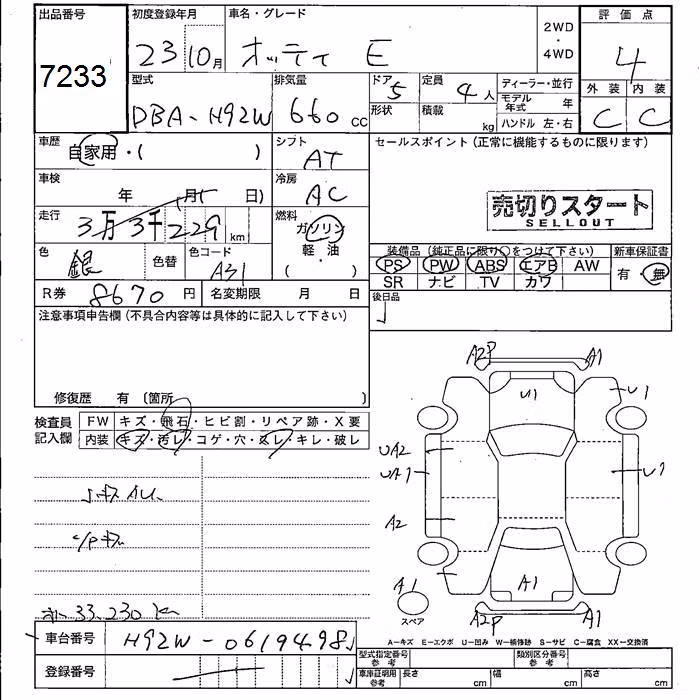 出品番号
7233
初度登録年月
23 10月
車名・グレード
オッティ E
2WD
・
4WD
評価点
4
型式
DBA-H92W
排気量
660 cc
ドア 5
形状
定員 4 人
積載 kg
ディーラー・並行
モデル年式 年
ハンドル 左・右
外装 内装
C C
車歴
自家用・( )
シフト
AT
車検
年 月 日)
冷房
AC
走行
3万3千229 km
燃料
ガソリン
軽・油
( )
色
銀
色替
色コード
A31
R券 8670 円
名変期限 月 日
セールスポイント(正常に機能するものに限ります)
売切りスタート
SELLOUT
装備品(純正品に限り○をつけて下さい)
新車保証書
PS PW ABS エアB AW
SR ナビ TV カワ
有・無
後日品
注意事項申告欄(不具合内容等は具体的に記入して下さい)
修復歴 有 (箇所 )
検査員
記入欄
FW キズ・飛石・ヒビ割・リペア跡・X要
内装 キズ・汚レ・コゲ・穴・スレ・キレ・破レ
33,230
A2P A1
U1 U1
UA2
UA1 U1
A2
A1 A1
スペア
A2P A1
A-キズ E-エクボ U-凹み W-補修跡 S-サビ C-腐食 XX-交換済
車台番号 H92W-0619498
登録番号
型式指定番号
参考
類別区分番号
参考
車庫証明用
参考
長さ cm 幅 cm 高さ cm